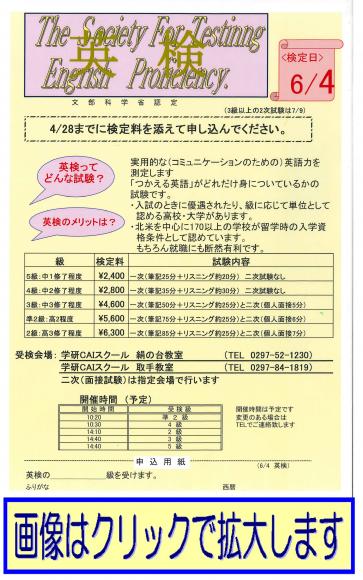 The Society For Testinng
English Proficiency.
英検
文部科学省認定
<検定日>
6/4
(3級以上の2次試験は7/9)
4/28までに検定料を添えて申し込んでください。
英検って
どんな試験?
実用的な(コミュニケーションのための)英語力を
測定します
「つかえる英語」がどれだけ身についているかの
試験です。
英検のメリットは?
・入試のときに優遇されたり、級に応じて単位として
認める高校・大学があります。
・北米を中心に170以上の学校が留学時の入学資
格条件として認めています。
もちろん就職にも断然有利です。
級 検定料 試験内容
5級:中1修了程度 ¥2,400 一次(筆記25分+リスニング約20分) 二次試験なし
4級:中2修了程度 ¥2,800 一次(筆記35分+リスニング約30分) 二次試験なし
3級:中3修了程度 ¥4,600 一次(筆記50分+リスニング約25分)と二次(個人面接5分)
準2級:高2程度 ¥5,600 一次(筆記75分+リスニング約25分)と二次(個人面接6分)
2級:高3修了程度 ¥6,300 一次(筆記85分+リスニング約25分)と二次(個人面接7分)
受検会場: 学研CAIスクール 絹の台教室 (TEL 0297-52-1230)
学研CAIスクール 取手教室 (TEL 0297-84-1819)
二次(面接試験)は指定会場で行います
開催時間 (予定)
開始時間 受検級
10:20 準2級
10:30 4級
14:10 2級
14:40 3級
14:40 5級
開催時間は予定です
変更のある場合は
TELでご連絡致します
申込用紙
(6/4 英検)
英検の__________級を受けます。
ふりがな 西暦
画像はクリックで拡大します